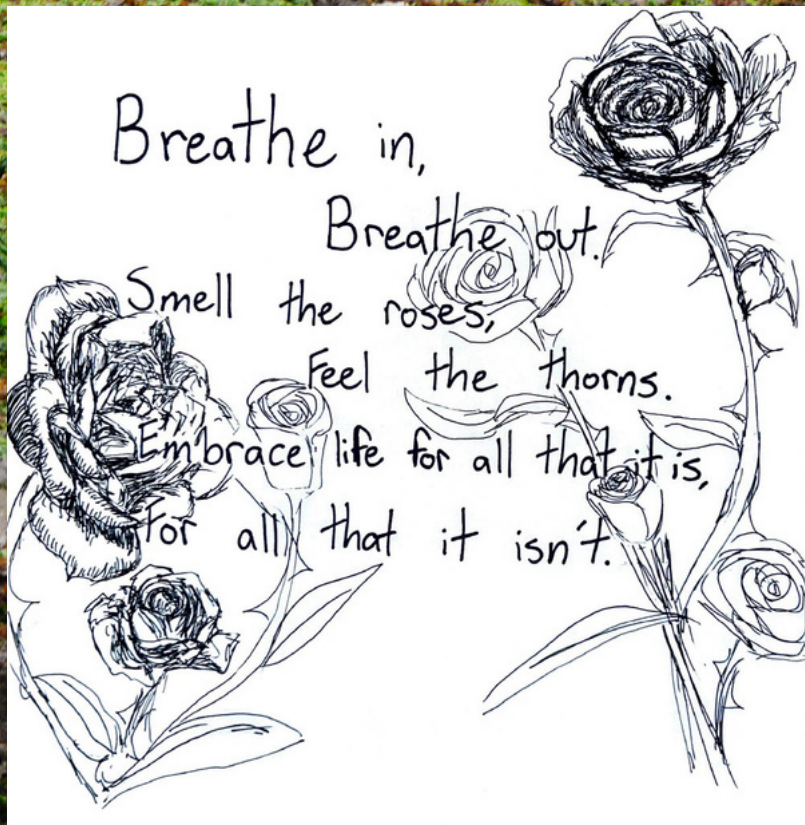 Breathe in,
Breathe out.
Smell the roses,
Feel the thorns.
Embrace life for all that it is,
For all that it isn't.